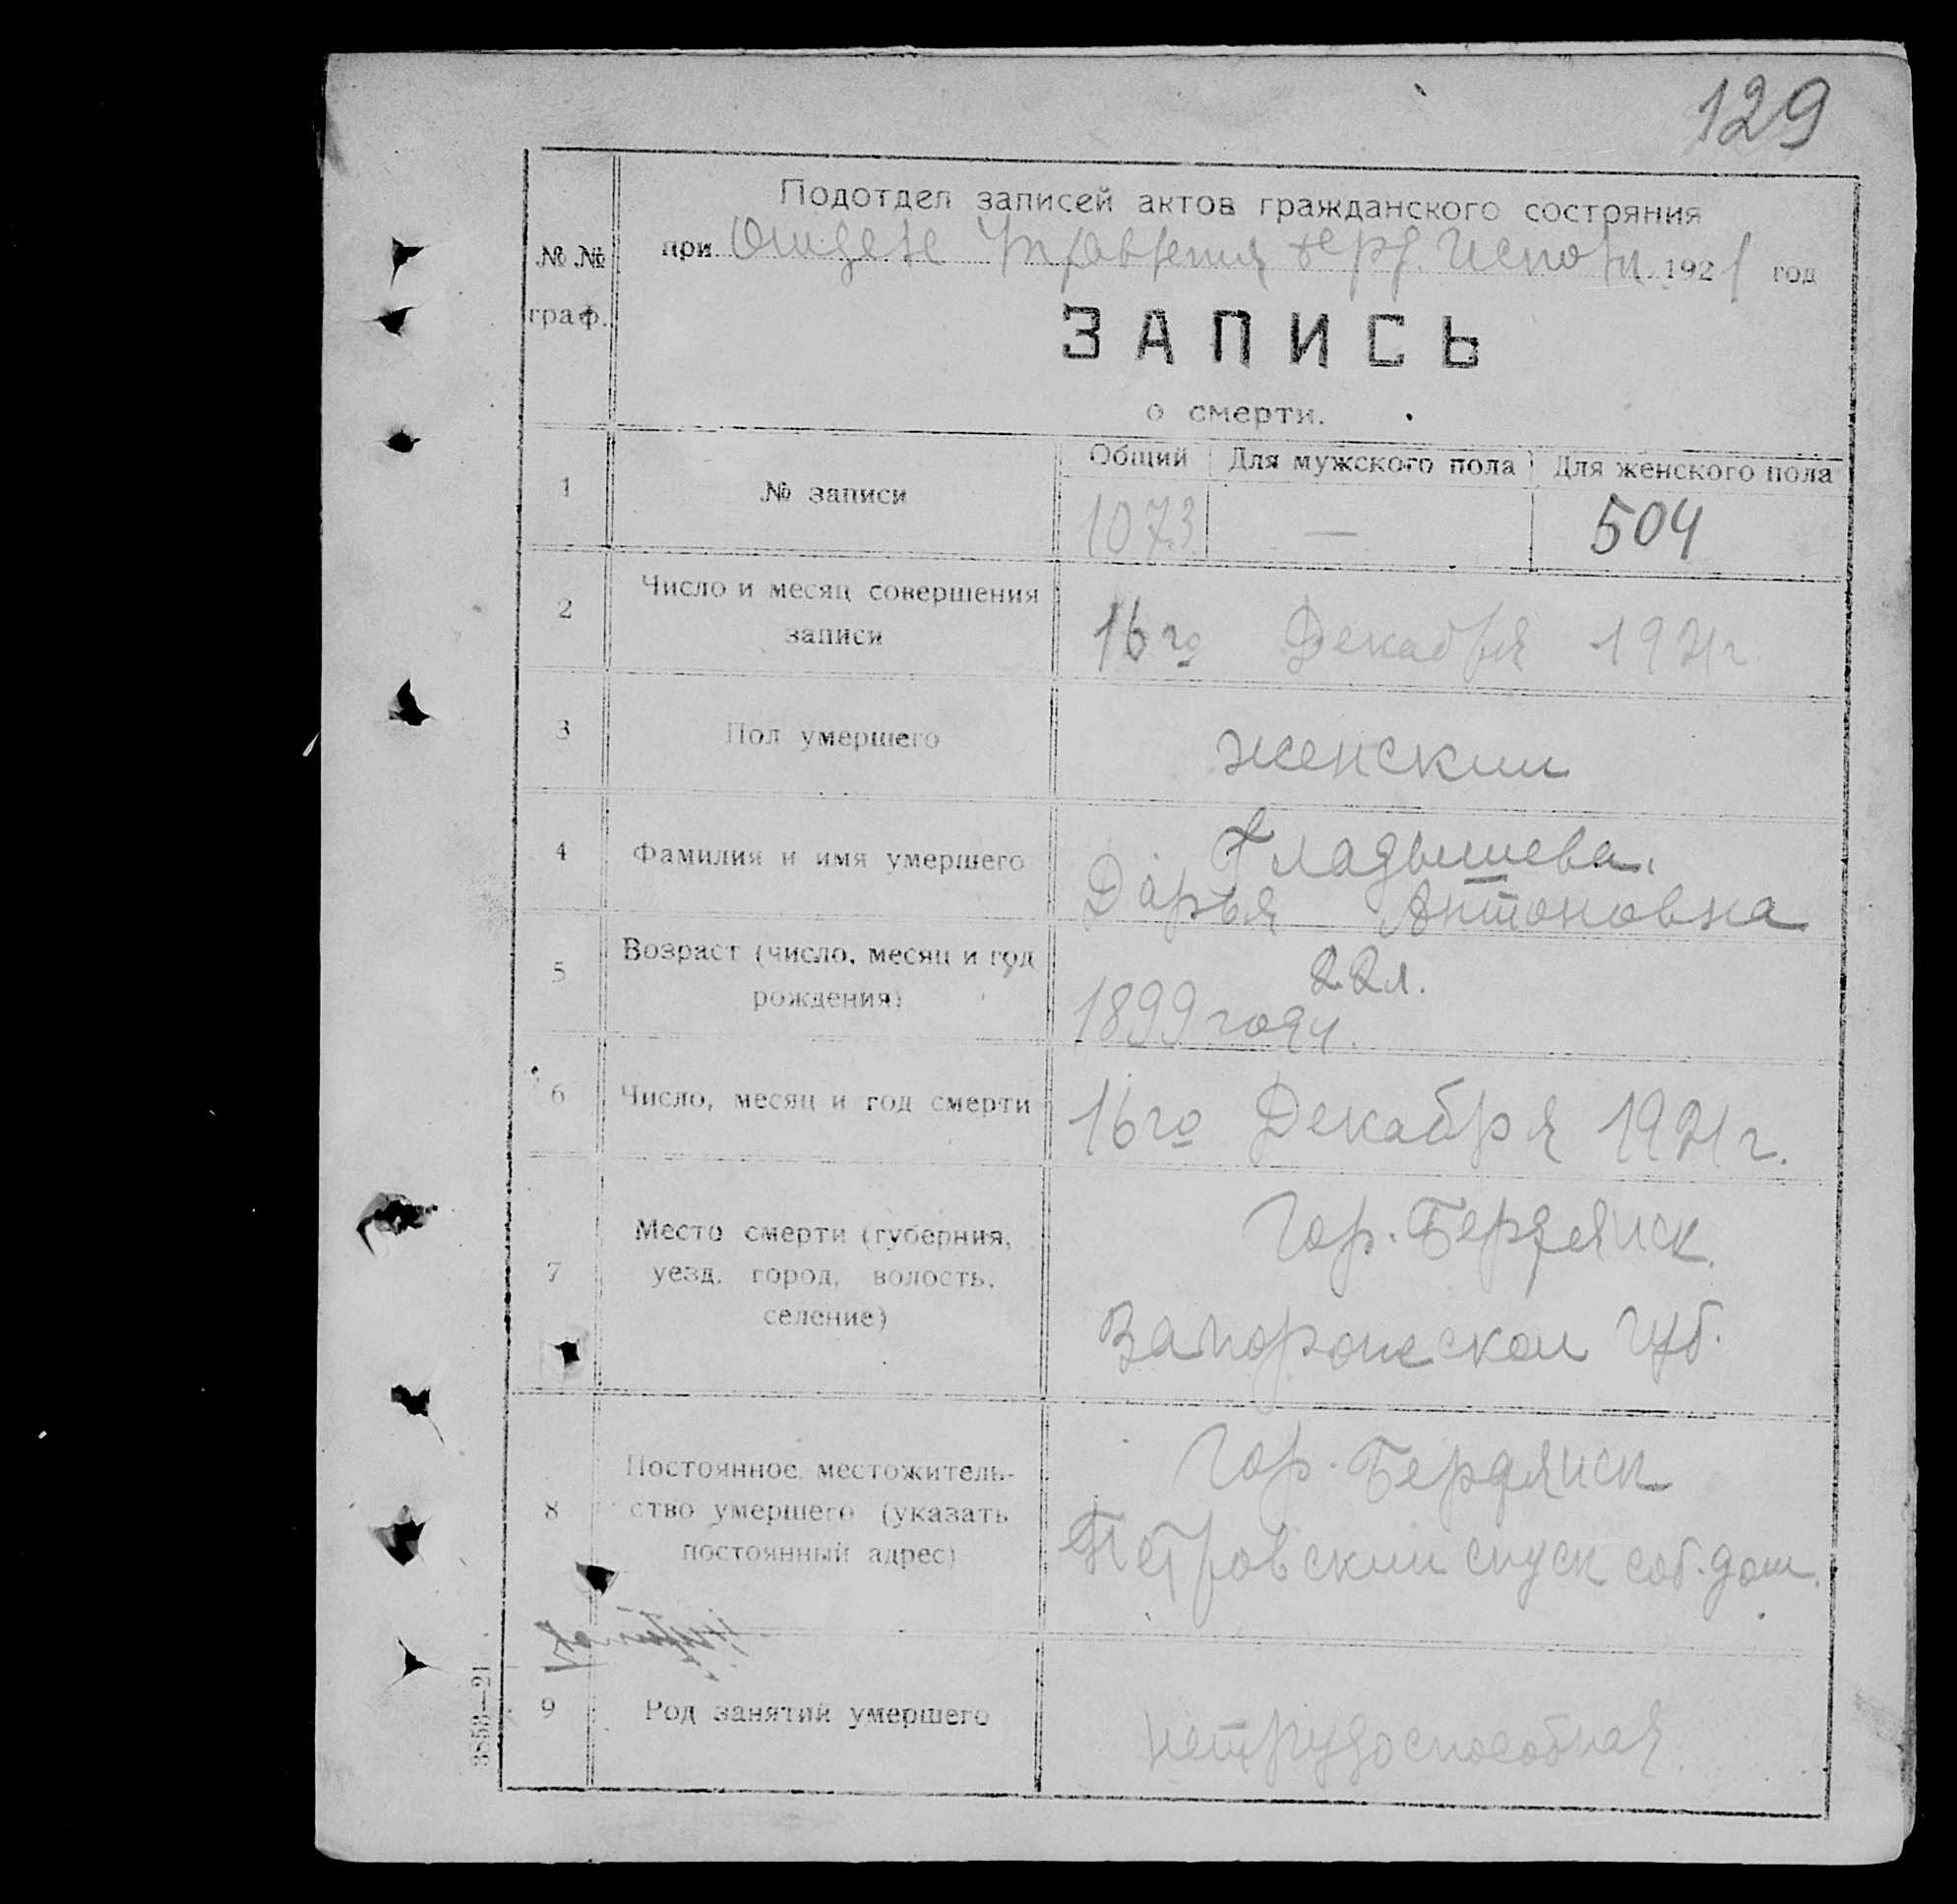 129
Подотдел записей актов гражданского состояния
№ № при Отделе Управления Берд. Исполк. 1921 год
граф.
ЗАПИСЬ
о смерти.
Общий Для мужского пола Для женского пола
1 № записи 1073 — 504
2 Число и месяц совершения
записи 16го Декабря 1921г.
3 Пол умершего женский
4 Фамилия и имя умершего Гладышева.
Дарья Антоновна
5 Возраст (число, месяц и год 22л.
рождения) 1899 году.
6 Число, месяц и год смерти 16го Декабря 1921г.
Место смерти (губерния, гор. Бердянск.
7 уезд, город, волость,
селение) Запорожской губ.
Постоянное местожитель- гор. Бердянск
8 ство умершего (указать Петровский спуск соб. дом.
постоянный адрес)
9 Род занятий умершего нетрудоспособная.
3853—21